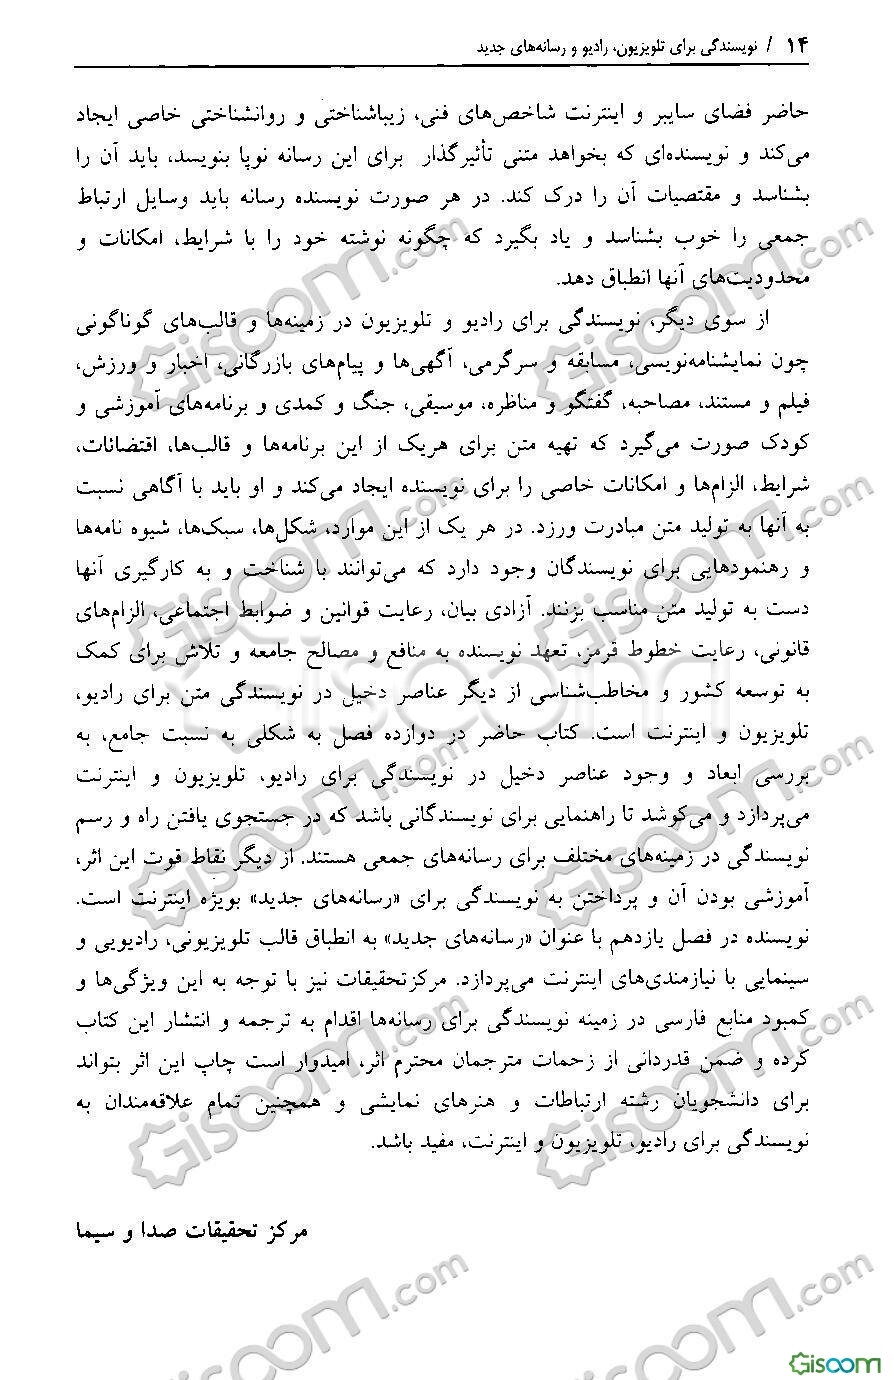 ۱۴ / نویسندگی برای تلویزیون، رادیو و رسانه‌های جدید
حاضر فضای سایبر و اینترنت شاخص‌های فنی، زیباشناختی و روانشناختی خاصی ایجاد
می‌کند و نویسنده‌ای که بخواهد متنی تأثیرگذار برای این رسانه نوپا بنویسد، باید آن را
بشناسد و مقتضیات آن را درک کند. در هر صورت نویسنده رسانه باید وسایل ارتباط
جمعی را خوب بشناسد و یاد بگیرد که چگونه نوشته خود را با شرایط، امکانات و
محدودیت‌های آنها انطباق دهد.
از سوی دیگر، نویسندگی برای رادیو و تلویزیون در زمینه‌ها و قالب‌های گوناگونی
چون نمایشنامه‌نویسی، مسابقه و سرگرمی، آگهی‌ها و پیام‌های بازرگانی، اخبار و ورزش،
فیلم و مستند، مصاحبه، گفتگو و مناظره، موسیقی، جنگ و کمدی و برنامه‌های آموزشی و
کودک صورت می‌گیرد که تهیه متن برای هریک از این برنامه‌ها و قالب‌ها، اقتضائات،
شرایط، الزام‌ها و امکانات خاصی را برای نویسنده ایجاد می‌کند و او باید با آگاهی نسبت
به آنها به تولید متن مبادرت ورزد. در هر یک از این موارد، شکل‌ها، سبک‌ها، شیوه نامه‌ها
و رهنمودهایی برای نویسندگان وجود دارد که می‌توانند با شناخت و به کارگیری آنها
دست به تولید متن مناسب بزنند. آزادی بیان، رعایت قوانین و ضوابط اجتماعی، الزام‌های
قانونی، رعایت خطوط قرمز، تعهد نویسنده به منافع و مصالح جامعه و تلاش برای کمک
به توسعه کشور و مخاطب‌شناسی از دیگر عناصر دخیل در نویسندگی متن برای رادیو،
تلویزیون و اینترنت است. کتاب حاضر در دوازده فصل به شکلی به نسبت جامع، به
بررسی ابعاد و وجود عناصر دخیل در نویسندگی برای رادیو، تلویزیون و اینترنت
می‌پردازد و می‌کوشد تا راهنمایی برای نویسندگانی باشد که در جستجوی یافتن راه و رسم
نویسندگی در زمینه‌های مختلف برای رسانه‌های جمعی هستند. از دیگر نقاط قوت این اثر،
آموزشی بودن آن و پرداختن به نویسندگی برای «رسانه‌های جدید» بویژه اینترنت است.
نویسنده در فصل یازدهم با عنوان «رسانه‌های جدید» به انطباق قالب تلویزیونی، رادیویی و
سینمایی با نیازمندی‌های اینترنت می‌پردازد. مرکزتحقیقات نیز با توجه به این ویژگی‌ها و
کمبود منابع فارسی در زمینه نویسندگی برای رسانه‌ها اقدام به ترجمه و انتشار این کتاب
کرده و ضمن قدردانی از زحمات مترجمان محترم اثر، امیدوار است چاپ این اثر بتواند
برای دانشجویان رشته ارتباطات و هنرهای نمایشی و همچنین تمام علاقه‌مندان به
نویسندگی برای رادیو، تلویزیون و اینترنت، مفید باشد.
مرکز تحقیقات صدا و سیما
Gisoom